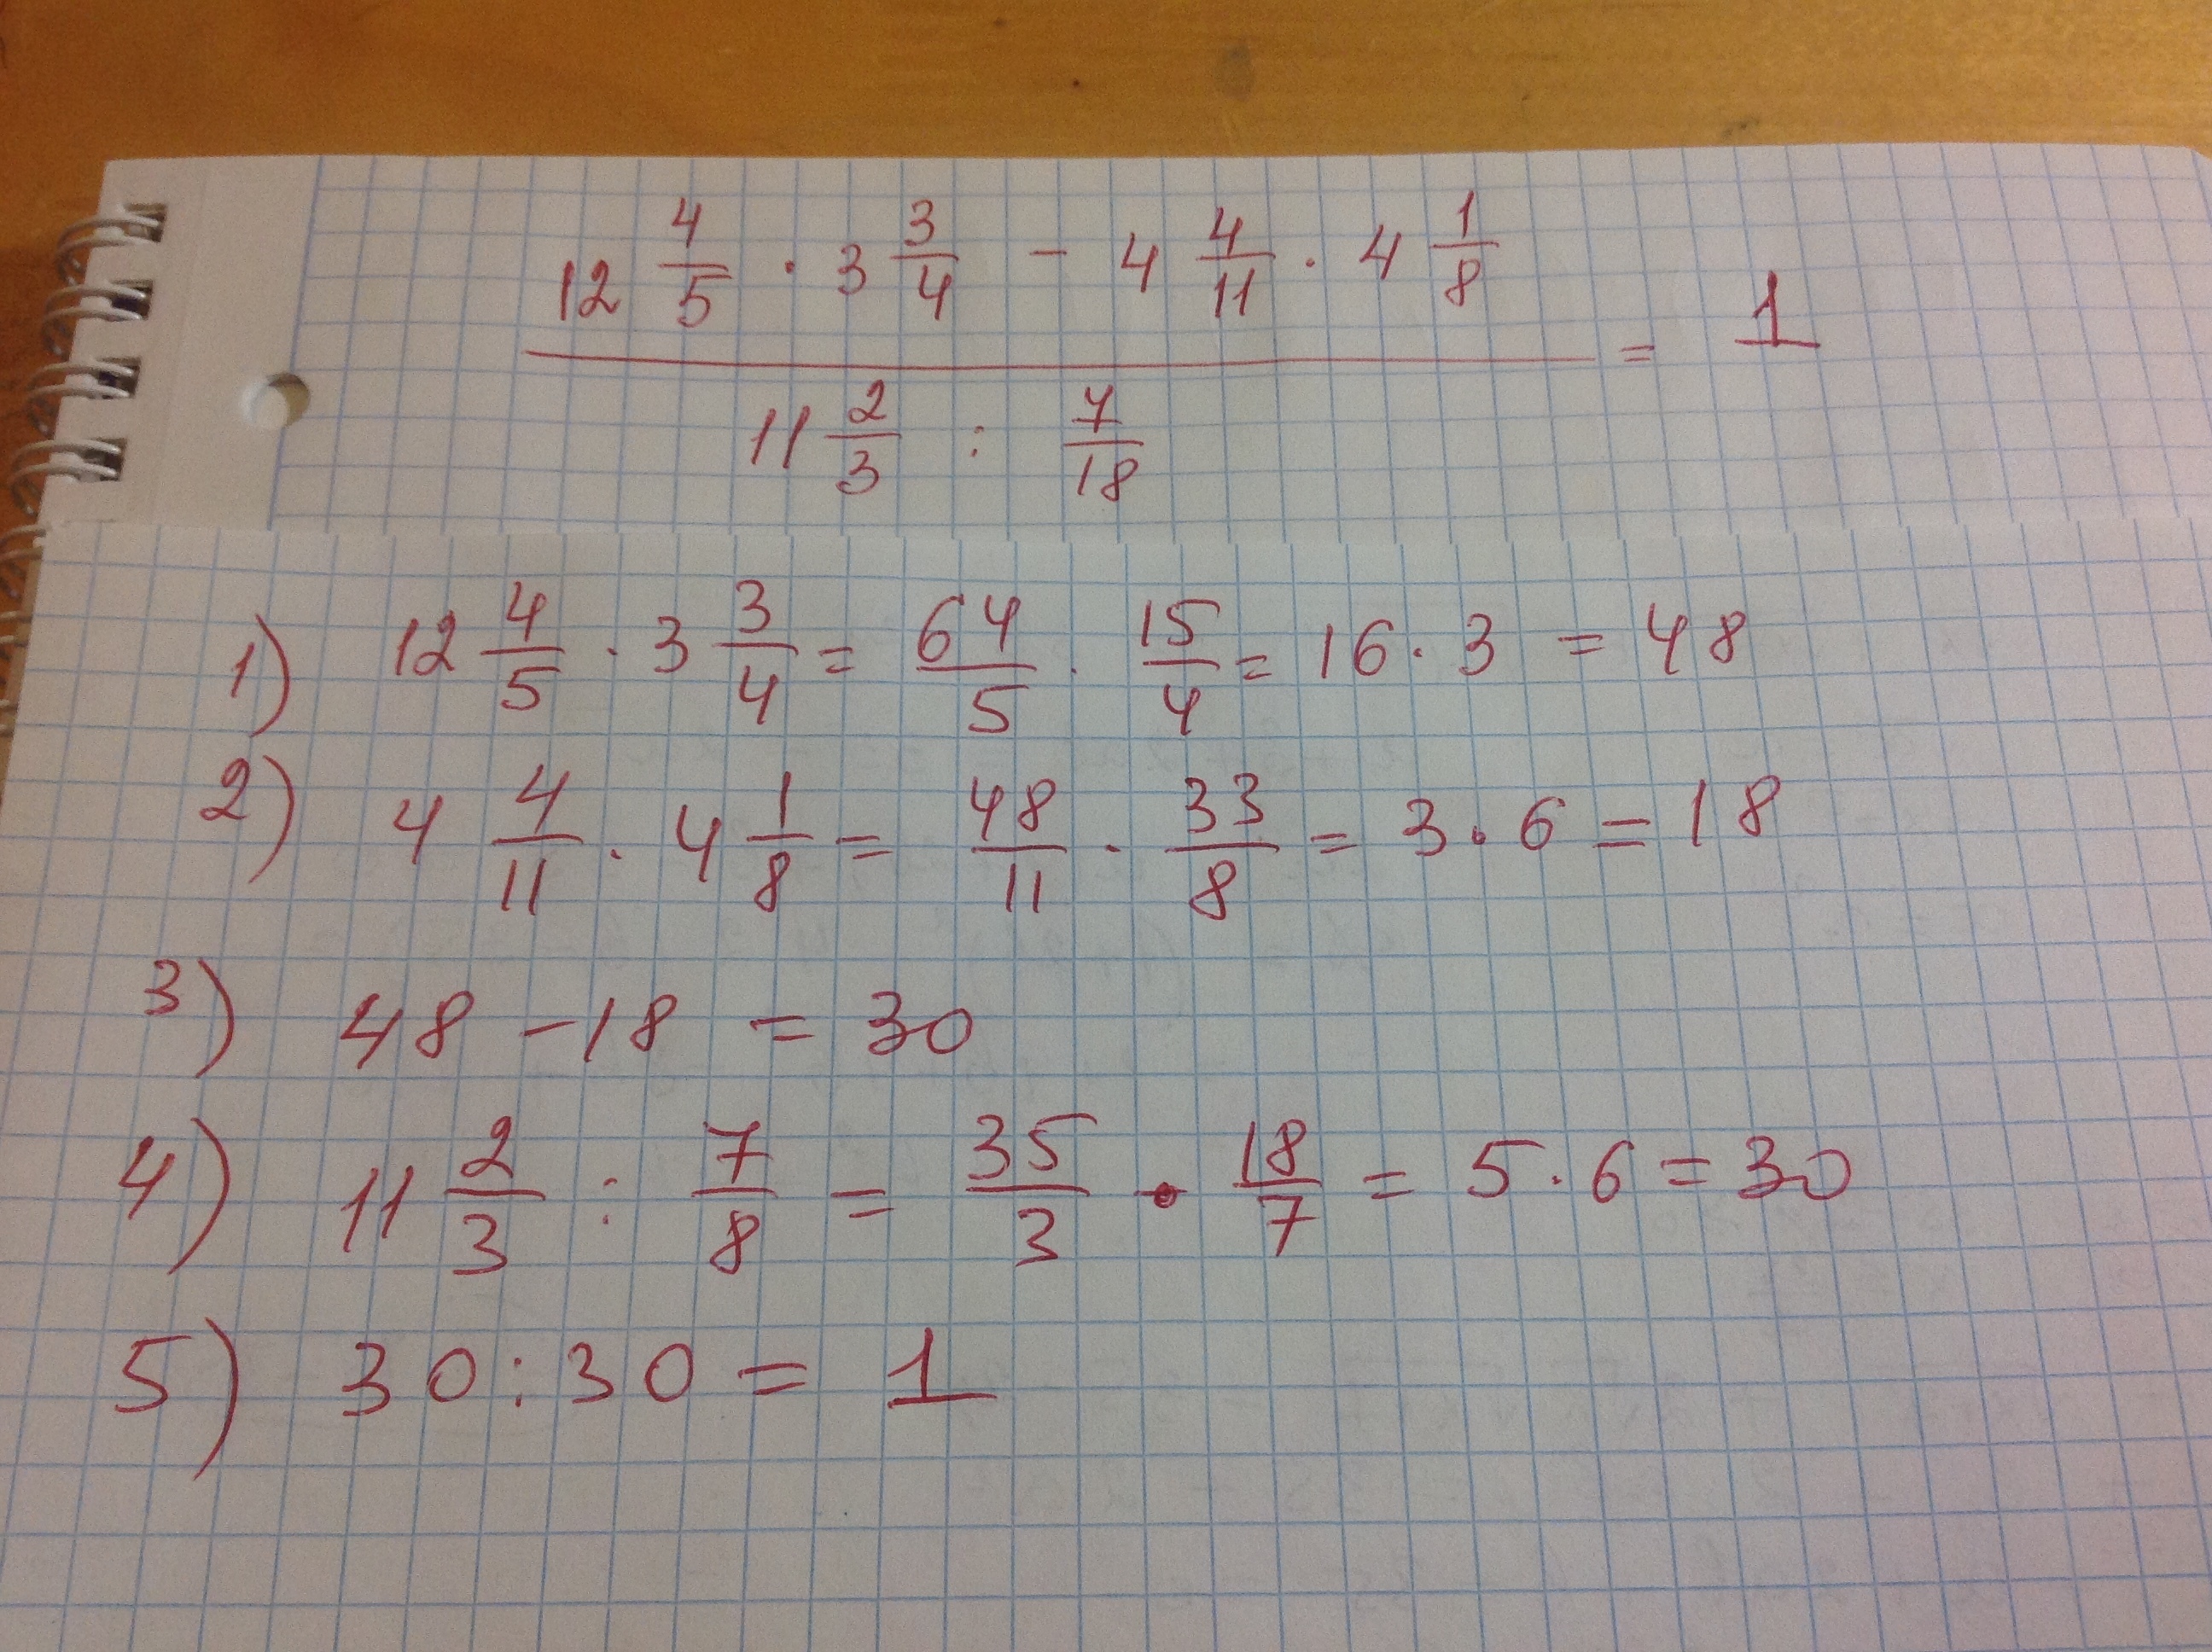 (12 4/5 · 3 3/4 - 4 4/11 · 4 1/8) / (11 2/3 : 7/18) = 1
1) 12 4/5 · 3 3/4 = 64/5 · 15/4 = 16 · 3 = 48
2) 4 4/11 · 4 1/8 = 48/11 · 33/8 = 3 · 6 = 18
3) 48 - 18 = 30
4) 11 2/3 : 7/8 = 35/3 · 18/7 = 5 · 6 = 30
5) 30 : 30 = 1